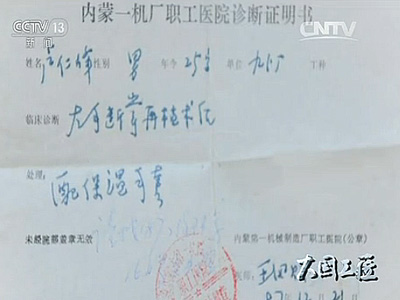 CCTV 13
新闻
CNTV
内蒙一机厂职工医院诊断证明书
姓名 卢仁峰 性别 男 年令 25岁 单位 工种
临床诊断 左手断掌再植术后
处理:
配保温手套
未经院部盖章无效
内蒙第一机械制造厂职工医院(公章)
大国工匠